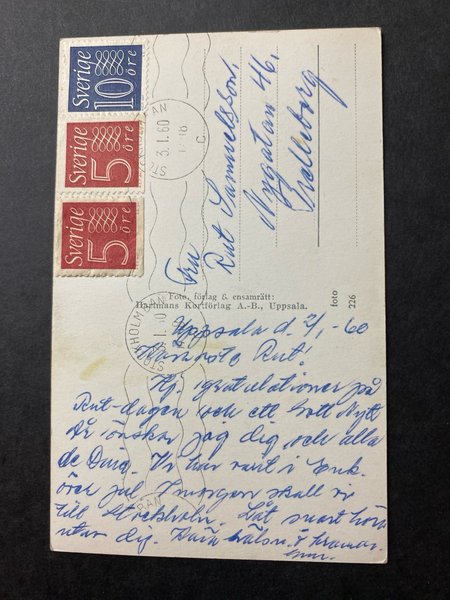 Sverige
10 öre
Sverige
5 öre
Sverige
5 öre
3.1.60
Fru
Rut Samuelsson,
Nygatan 46.
Trelleborg
Foto, förlag & ensamrätt:
Hartmans Kortförlag A.-B., Uppsala.
foto
226
STOCKHOLM BAN
Uppsala d. 2/1 -60
Käraste Rut!
Hj. gratulationer på
Rut-dagen och ett Gott Nytt
År önskar jag dig och alla
de Dina. Vi har varit i Enk-
över jul. I morgon skall vi
till Stockholm. Låt snart höra
utav dig. Kära hälsn. & kramar